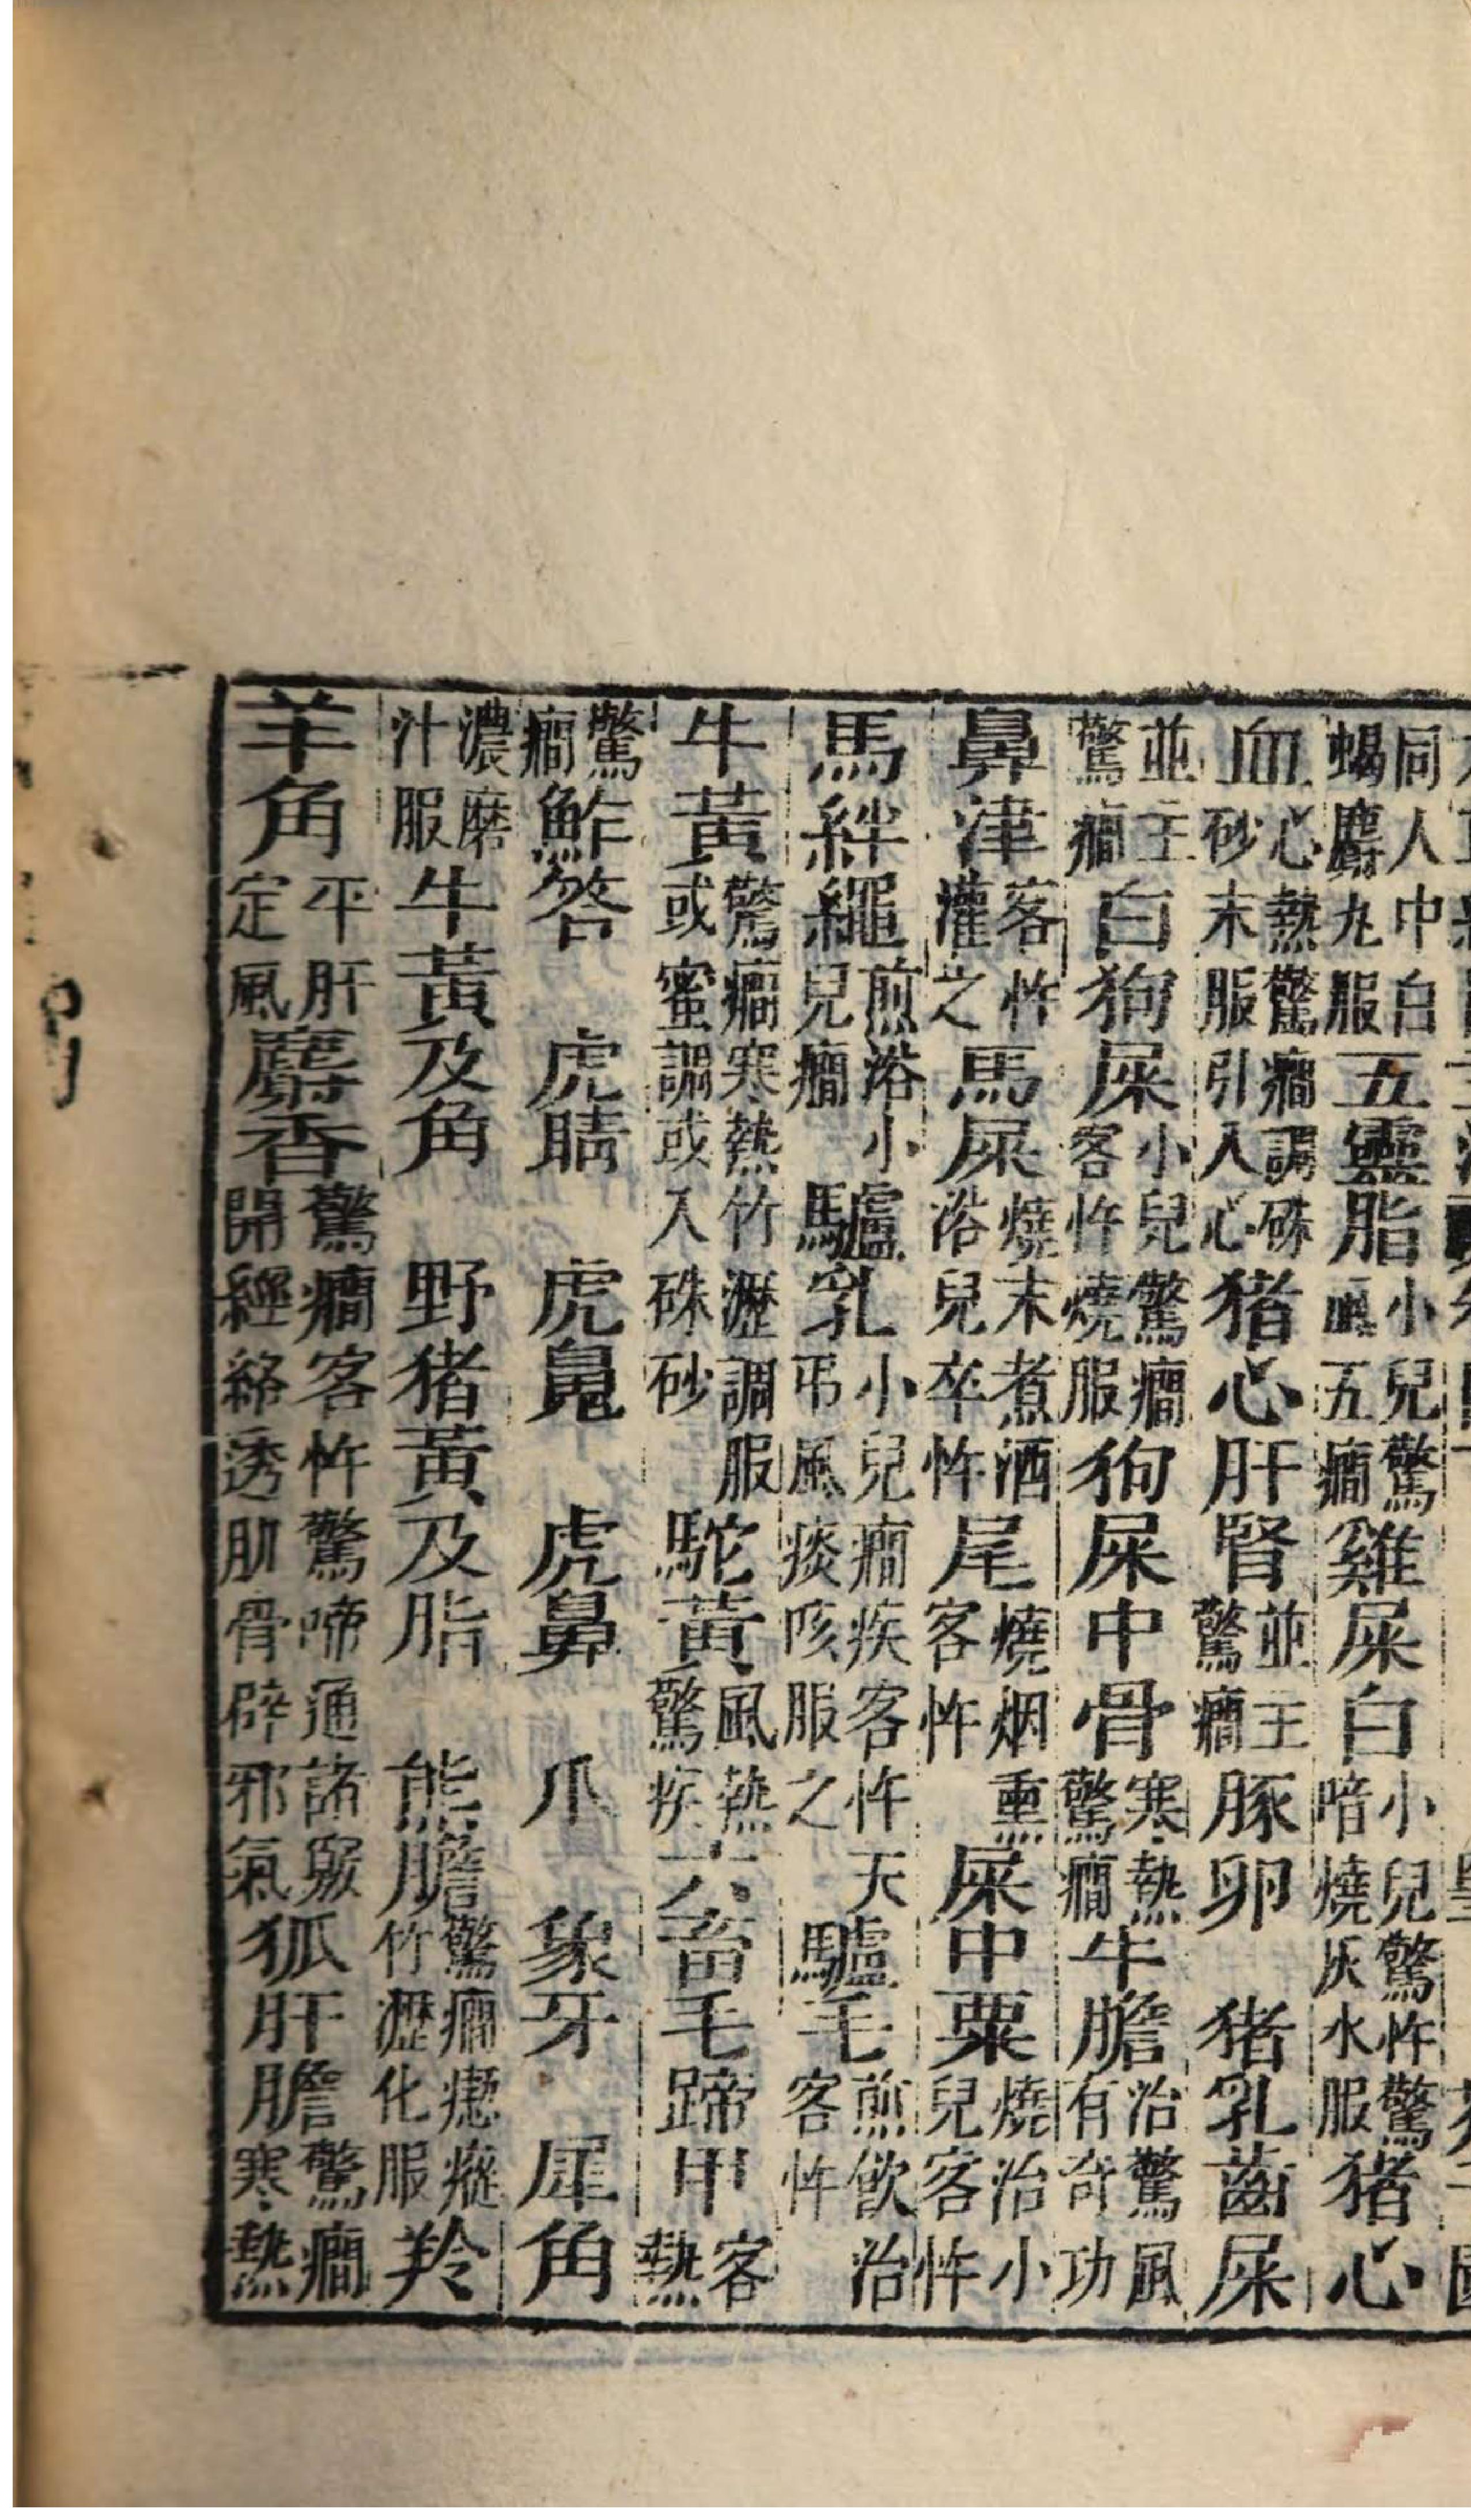 同人中白蝎麝丸服五靈脂小兒驚風五癇雞屎白小兒驚忤驚啼燒灰水服猪心
血心熱驚癇調硃砂末服引入心猪心肝腎並主驚癇豚卵 猪乳齒屎
並主驚癇白狗屎小兒驚癇客忤燒服狗屎中骨寒熱驚癇牛膽治驚風有奇功
鼻津客忤灌之馬屎燒末煮酒浴兒卒忤尾燒烟熏客忤屎中粟燒治小兒客忤
馬絆繩煎浴小兒癇驢乳小兒癇疾客忤天弔風痰咳服之驢毛煎飲治客忤
牛黃驚癇寒熱竹瀝調服或蜜調或入硃砂駝黃風熱驚疾六畜毛蹄甲客熱
驚癇鮓答 虎睛 虎 虎鼻 爪 象牙 犀角
濃磨汁服牛黃及角 野猪黃及脂 熊膽驚癇瘛瘲竹瀝化服羚
羊角平肝定風麝香驚癇客忤驚啼通諸竅開經絡透肌骨辟邪氣狐肝膽驚癇寒熱